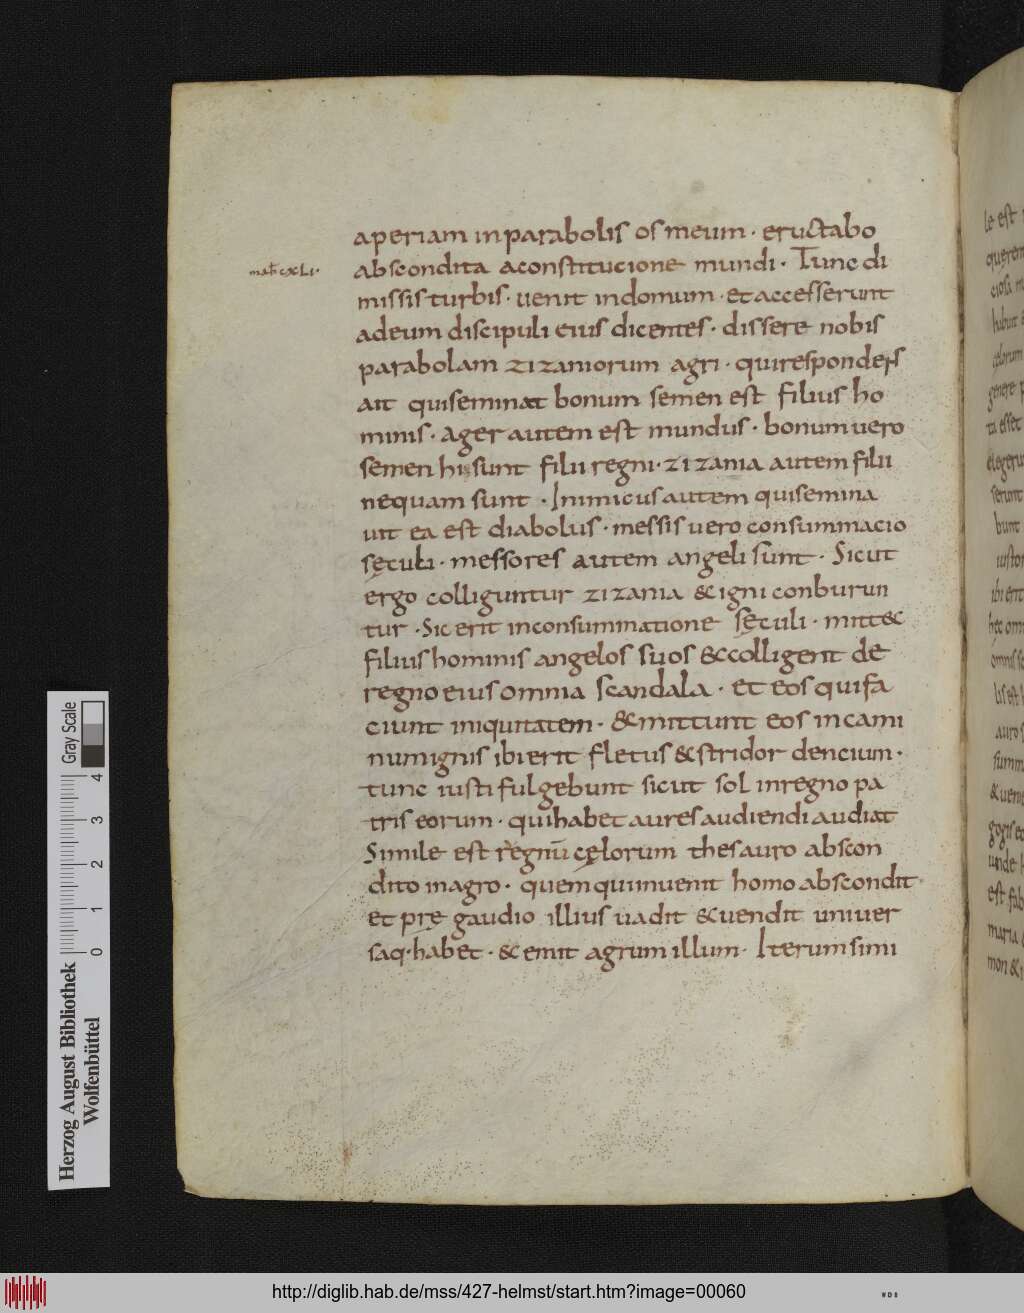 aperiam inparabolis os meum · eructabo
mat̄ cxLi·
abscondita aconstitucione mundi · Tunc di
missis turbis · uenit indomum · et accesserunt
adeum discipuli eius dicentes · dissere nobis
parabolam zizaniorum agri · quirespondens
ait quiseminat bonum semen est filius ho
minis · Ager autem est mundus · bonum uero
semen hi sunt filii regni · zizania autem filii
nequam sunt · Inimicus autem quisemina
uit ea est diabolus · messis uero consummacio
sęculi · messores autem angeli sunt · Sicut
ergo colliguntur zizania & igni conburun
tur · Sic erit inconsummatione sęculi · mittet
filius hominis angelos suos & colligent de
regno eius omnia scandala · et eos quifa
ciunt iniquitatem · & mittunt eos incami
numignis ibi erit fletus & stridor dencium ·
tunc iusti fulgebunt sicut sol inregno pa
tris eorum · quihabet aures audiendi audiat
Simile est regnū cęlorum thesauro abscon
dito inagro · quem quiinuenit homo abscondit ·
et prę gaudio illius uadit & uendit uniuer
saq· habet · & emit agrum illum · Iterum simi
le est
Herzog August Bibliothek
Wolfenbüttel
0 1 2 3 4
Gray Scale
http://diglib.hab.de/mss/427-helmst/start.htm?image=00060